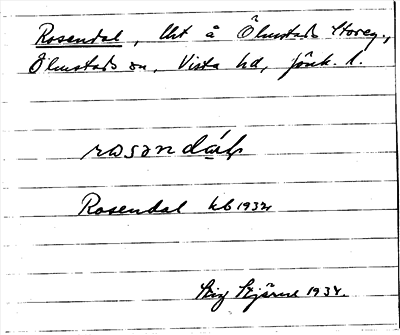 Rosendal, lht å Ölmstads Storeg.,
Ölmstads sn, Vista hd, Jönk. l.
rosəndáḷ
Rosendal kb 1932
Stig Stjärne 1934.